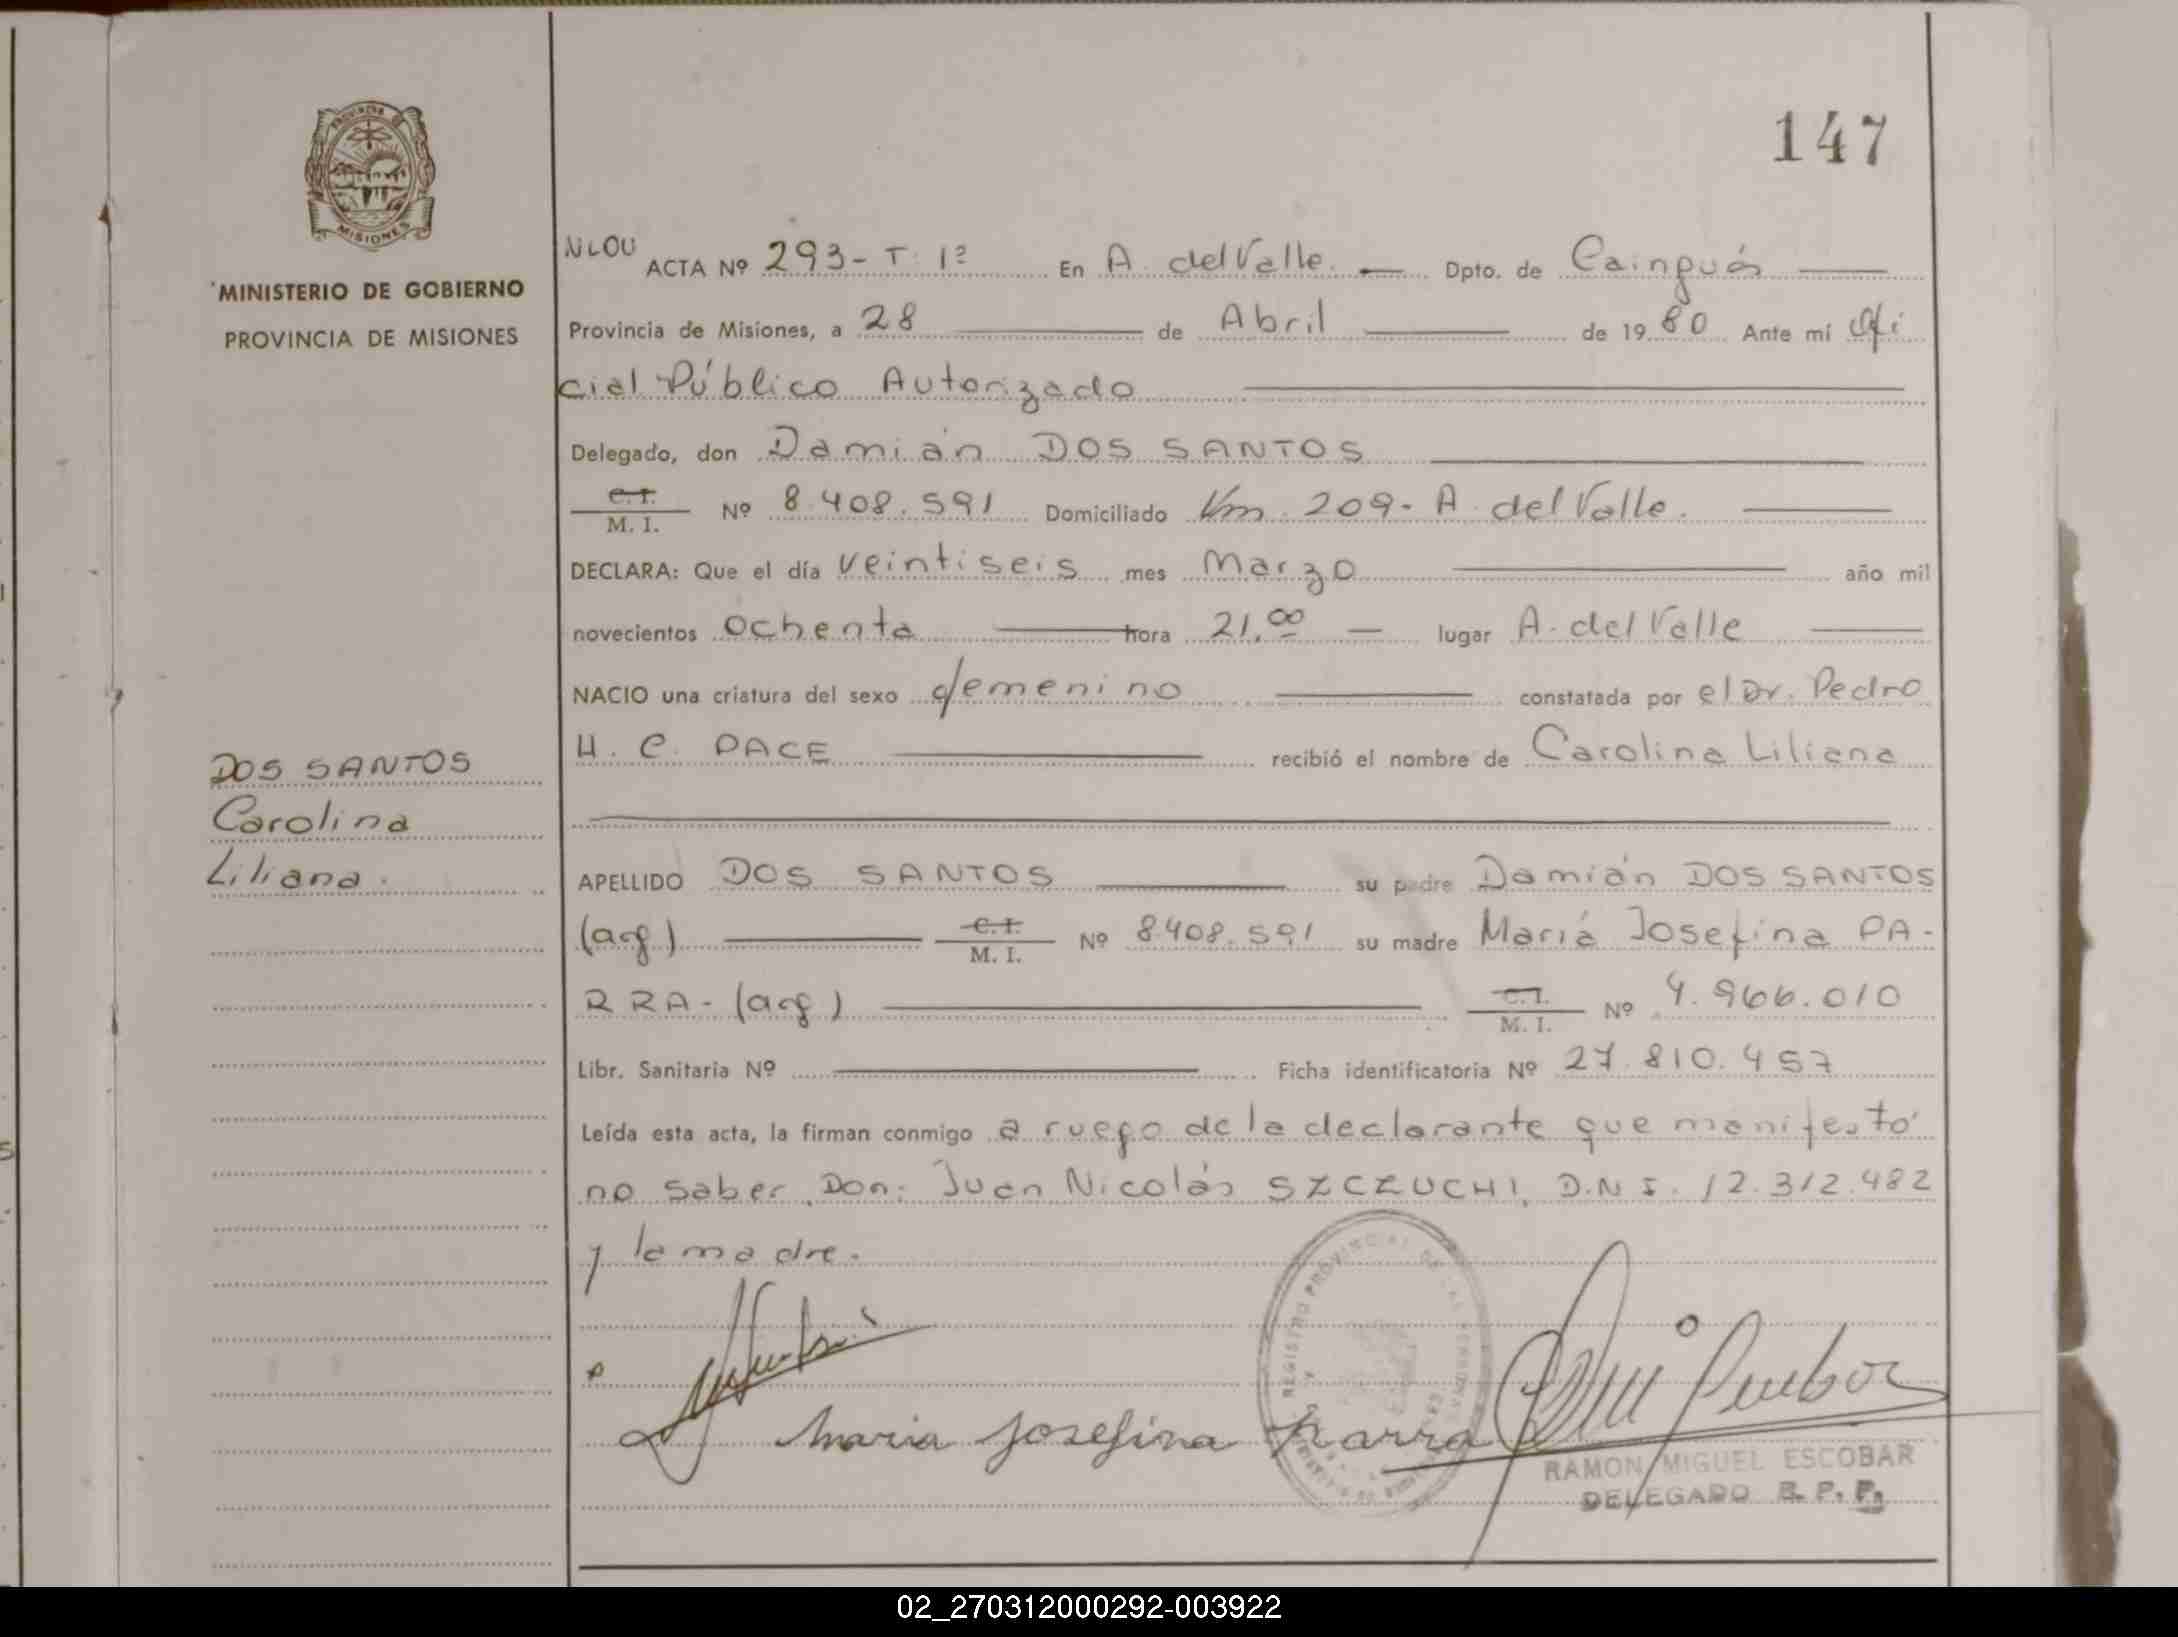 147
PROVINCIA DE
MISIONES
MINISTERIO DE GOBIERNO
PROVINCIA DE MISIONES
DOS SANTOS
Carolina
Liliana.
NLOU ACTA Nº 293- T. 1º En A. del Valle. — Dpto. de Cainguás
Provincia de Misiones, a 28 de Abril de 1980 Ante mí Ofi
cial Público Autorizado
Delegado, don Damián DOS SANTOS
C.I.
M. I. Nº 8.408.591 Domiciliado Km. 209- A. del Valle.
DECLARA: Que el día veintiseis mes Marzo año mil
novecientos ochenta hora 21,00 — lugar A. del Valle
NACIO una criatura del sexo femenino constatada por el Dr. Pedro
H. C. PACE recibió el nombre de Carolina Liliana
APELLIDO DOS SANTOS su padre Damián DOS SANTOS
(arg) C.I. M. I. Nº 8.408.591 su madre Mariá Josefina PA-
RRA- (arg) C.I. M. I. Nº 4.966.010
Libr. Sanitaria Nº Ficha identificatoria Nº 27.810.457
Leída esta acta, la firman conmigo a ruego de la declarante que manifestó
no saber Don: Juan Nicolás SZCZUCHI, D.N.I. 12.312.482
y la madre.
REGISTRO PROVINCIAL DE LAS PERSONAS
Maria Josefina Parra
RAMON MIGUEL ESCOBAR
DELEGADO R. P. P.
02_270312000292-003922